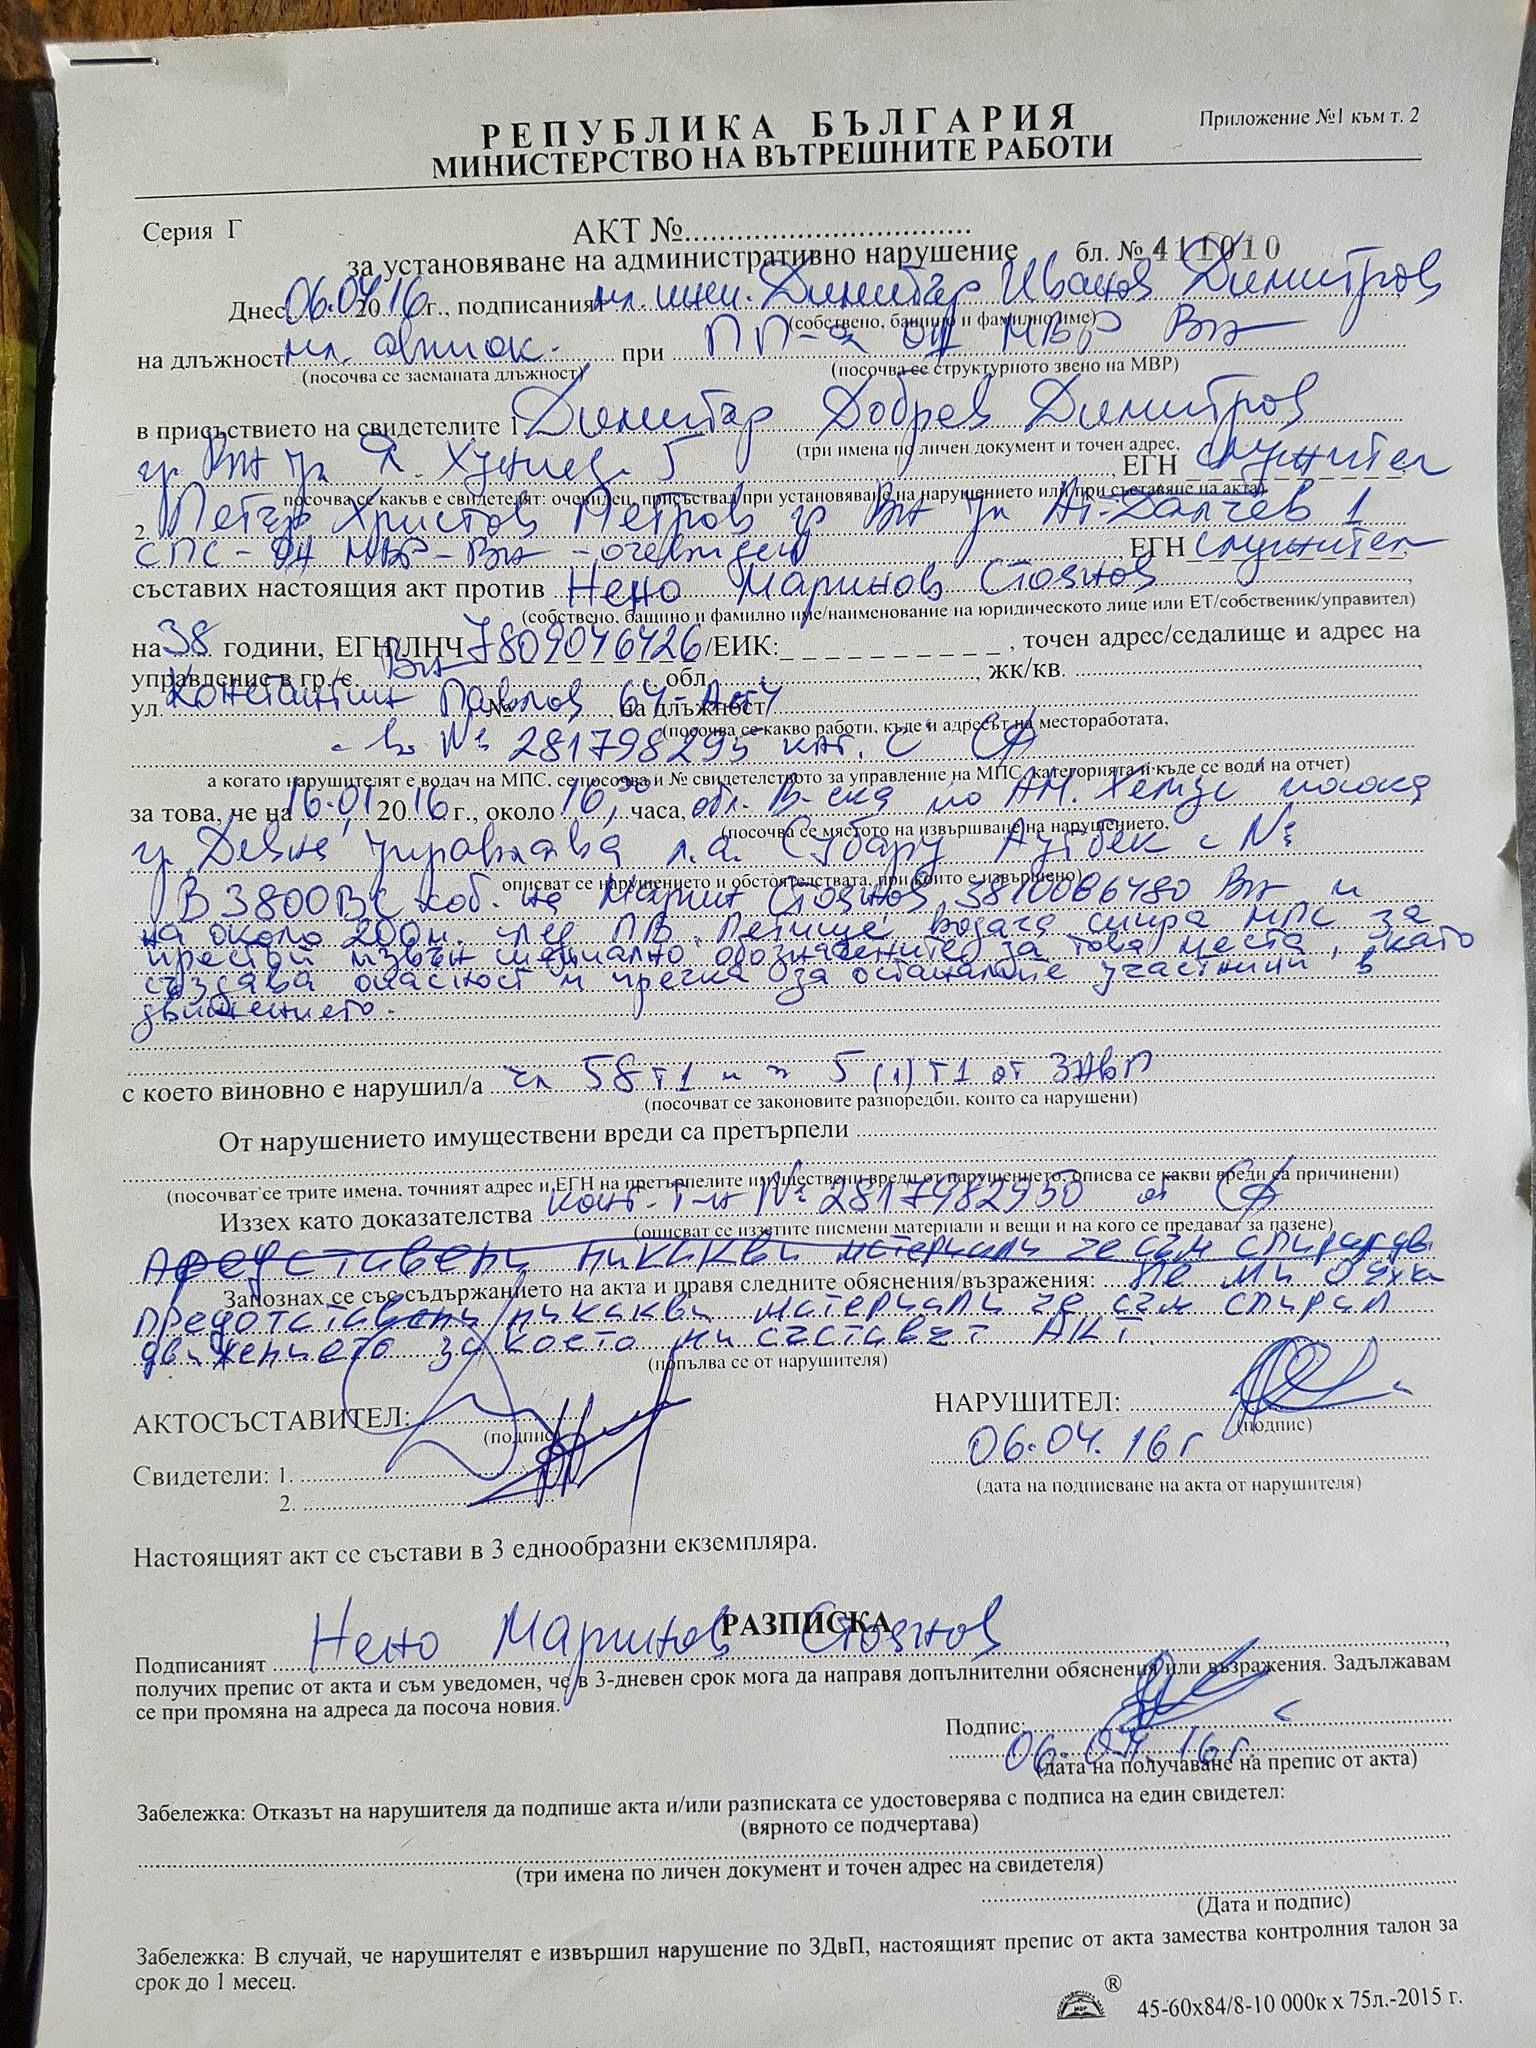 РЕПУБЛИКА БЪЛГАРИЯ
Приложение №1 към т. 2
МИНИСТЕРСТВО НА ВЪТРЕШНИТЕ РАБОТИ
Серия Г
АКТ №
за установяване на административно нарушение бл. № 411010
Днес 06.04 2016 г., подписаният мл. инсп. Димитър Иванов Димитров
(собствено, бащино и фамилно име)
на длъжност мл. авток. при ПП-я ОД МВР Вн
(посочва се заеманата длъжност) (посочва се структурното звено на МВР)
в присъствието на свидетелите 1. Димитър Добрев Димитров
(три имена по личен документ и точен адрес,
гр. Вн ул. 5, ЕГН служител
посочва се какъв е свидетелят: очевидец, присъствал при установяване на нарушението или при съставяне на акта)
2. Петър Христов Петров гр Вн ул Ат. Далчев 1
СПС - ОД МВР - Вн - очевидец, ЕГН служител
съставих настоящия акт против Нено Маринов Стоянов,
(собствено, бащино и фамилно име/наименование на юридическото лице или ЕТ/собственик/управител)
на 38 години, ЕГН/ЛНЧ 7809046426/ЕИК:, точен адрес/седалище и адрес на
управление в гр./с. Вн обл., жк/кв.
ул. Константин Павлов 64- № , на длъжност
(посочва се какво работи, къде и адресът на месторабoтата,
№ 281798295 кат. С СФ
а когато нарушителят е водач на МПС, се посочва и № свидетелството за управление на МПС, категорията и къде се води на отчет)
за това, че на 16.01 2016 г., около 16,00 часа, обл. В-ска по АМ. Хемус посока
(посочва се мястото на извършване на нарушението,
гр. Девня управлява л.а. Субару Аутбек с №
описват се нарушението и обстоятелствата, при които е извършено)
В3800ВС соб. на Марин Стоянов 3810086480 Вн и
на около 200м. след ПВ. водача спира МПС за
престой извън специално обозначените за това места, като
създава опасност и пречка за останалите участници в
движението.
с което виновно е нарушил/а чл 58 т1 и чл 5 (1) т1 от ЗДвП
(посочват се законовите разпоредби, които са нарушени)
От нарушението имуществени вреди са претърпели
(посочват се трите имена, точният адрес и ЕГН на претърпелите имуществени вреди от нарушението, описва се какви вреди са причинени)
Иззех като доказателства конт. т-н № 2817982950 от СФ
(описват се иззетите писмени материали и вещи и на кого се предават за пазене)
представени никакви материали че съм спирал дви
Запознах се със съдържанието на акта и правя следните обяснения/възражения: Не ми бяха
предотставени никакви материали че съм спирал
движението за което ми съставят АКТ.
(попълва се от нарушителя)
АКТОСЪСТАВИТЕЛ: НАРУШИТЕЛ:
(подпис) (подпис)
06.04.16г
Свидетели: 1.
(дата на подписване на акта от нарушителя)
2.
Настоящият акт се състави в 3 еднообразни екземпляра.
РАЗПИСКА
Подписаният Нено Маринов Стоянов,
получих препис от акта и съм уведомен, че в 3-дневен срок мога да направя допълнителни обяснения или възражения. Задължавам
се при промяна на адреса да посоча новия.
Подпис:
06.04.16г.
(дата на получаване на препис от акта)
Забележка: Отказът на нарушителя да подпише акта и/или разписката се удостоверява с подписа на един свидетел:
(вярното се подчертава)
(три имена по личен документ и точен адрес на свидетеля)
(Дата и подпис)
Забележка: В случай, че нарушителят е извършил нарушение по ЗДвП, настоящият препис от акта замества контролния талон за
срок до 1 месец.
® 45-60x84/8-10 000к x 75л.-2015 г.